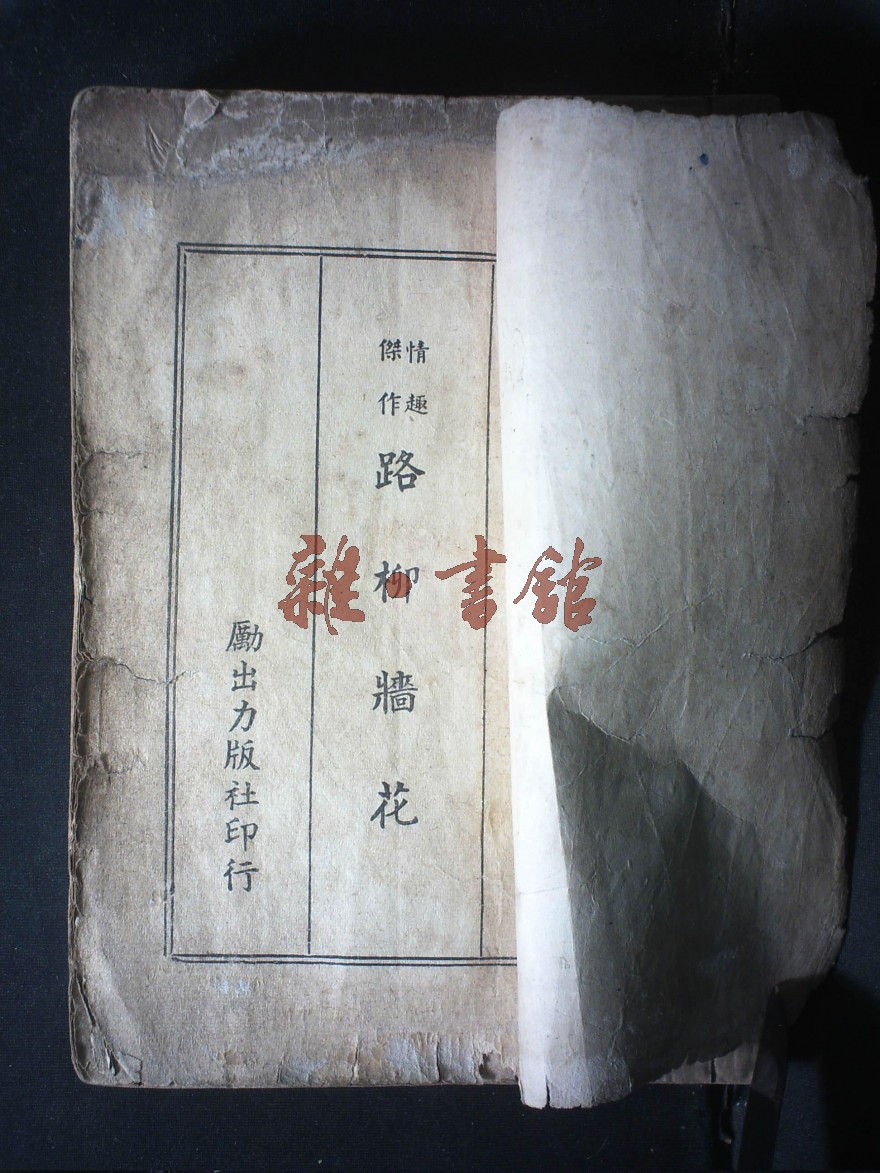 情趣
傑作
路柳牆花
勵出力版社印行
雜·書館